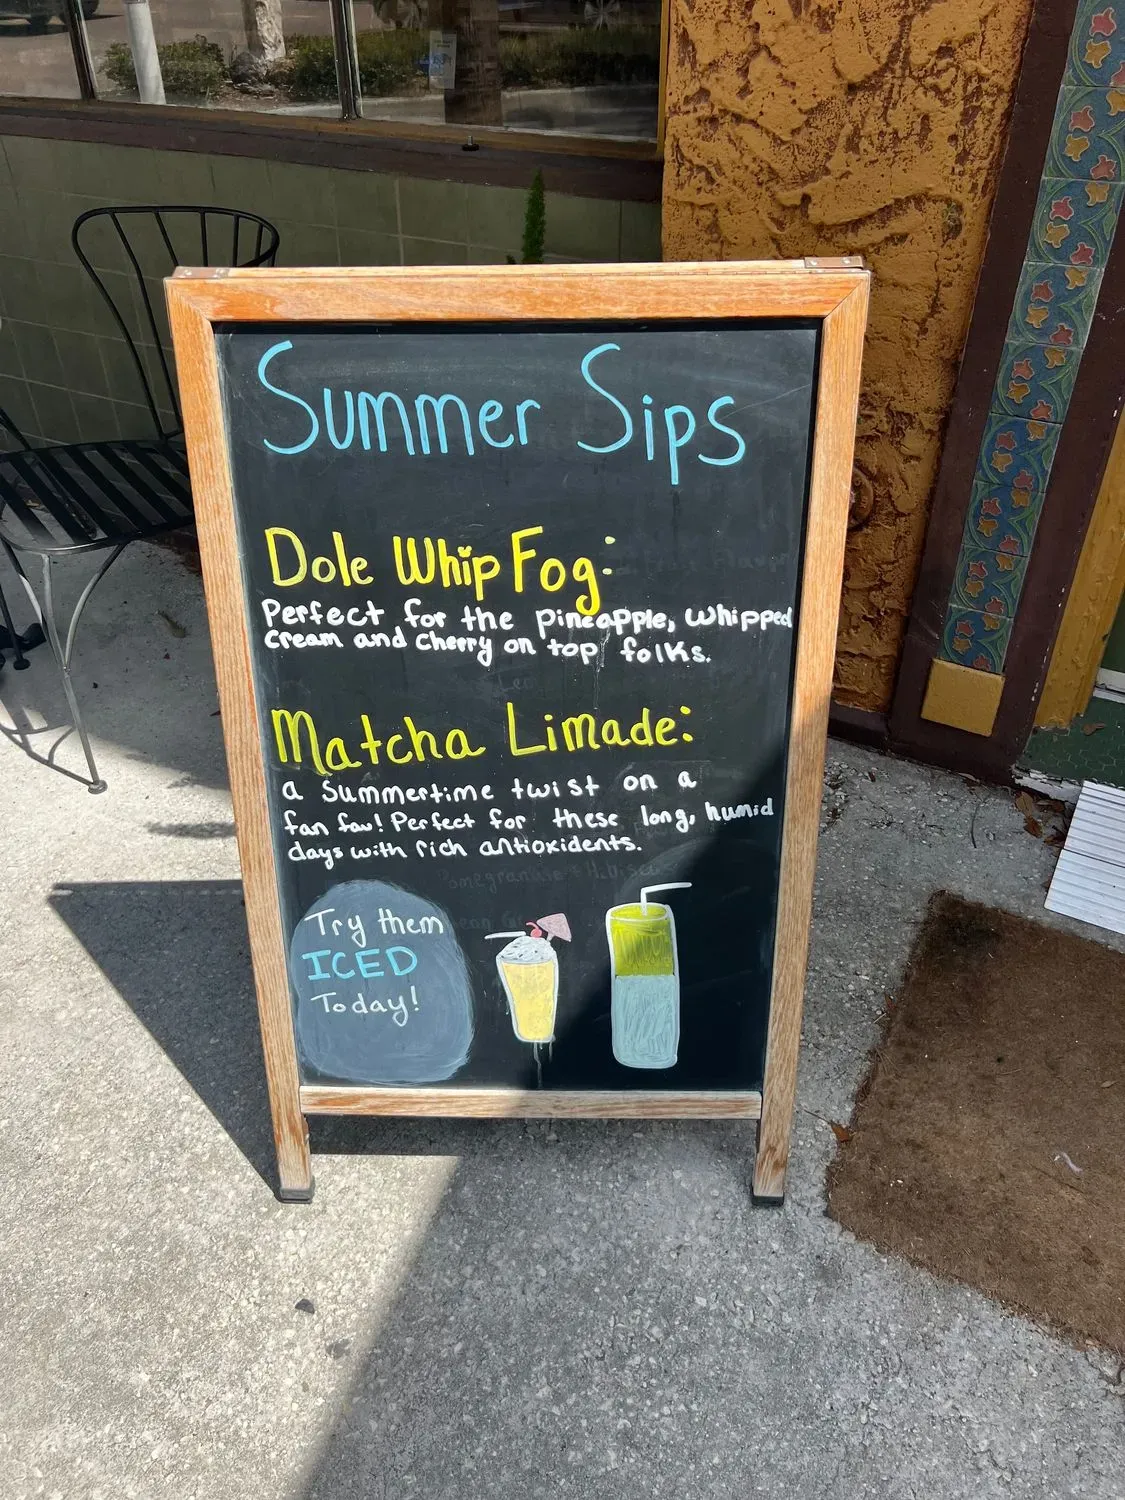 Summer Sips
Dole Whip Fog:
Perfect for the pineapple, whipped
cream and cherry on top folks.
Matcha Limade:
a summertime twist on a
fan fav! Perfect for these long, humid
days with rich antioxidents.
Try them
ICED
Today!